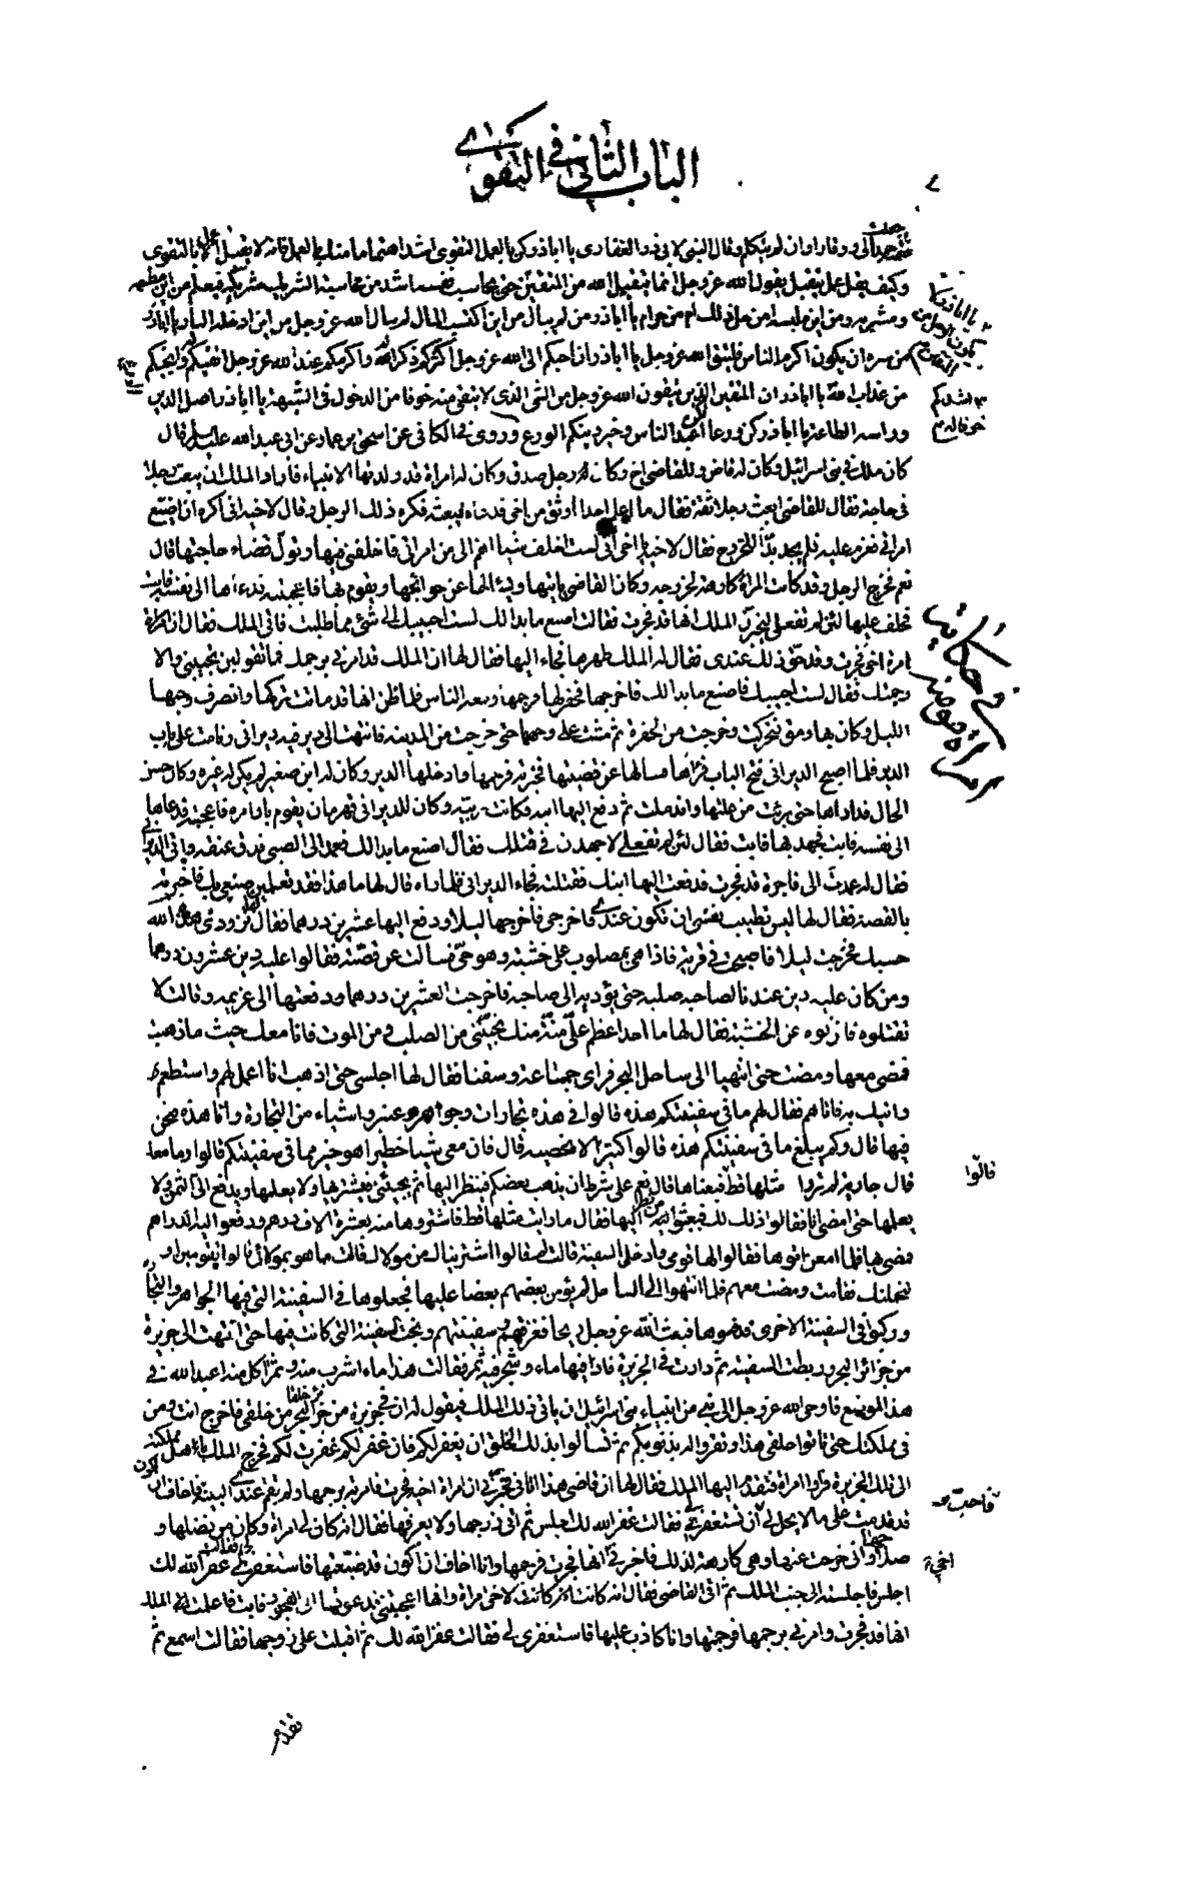 الباب الثاني في التقوى
وان لم يتكلم وقال النبي لابي ذر الغفاري يا اباذر كن بالعمل بالتقوى اشد اهتماما منك بالعمل فانه لا يقبل عمل الا بالتقوى
وكيف يقل عمل يتقبل يقول الله عز وجل انما يتقبل الله من المتقين حتى يحاسب نفسه اشد من محاسبة الشريك شريكه فيعلم من اين مطعمه
ومن اين مشربه ومن اين ملبسه امن حل ذلك ام من حرام يا اباذر من لم يبال من اين اكتسب المال لم يبال الله عز وجل من اين ادخله النار يا اباذر
من سره ان يكون اكرم الناس فليتق الله عز وجل يا اباذر ان احبكم الى الله عز وجل اكثركم ذكرا له واكرمكم عند الله عز وجل اتقيكم له وانجيكم
من عذاب الله يا اباذر ان المتقين الذين يتقون الله عز وجل من الشئ الذى لا يتقى منه خوفا من الدخول فى الشبهة يا اباذر اصل الدين
وراسه الطاعة يا اباذر كن ورعا تكن اعبد الناس وخير دينكم الورع وروى فى الكافى عن اسحق بن عمار عن ابى عبد الله عليه السلم قال
كان ملك فى بنى اسرائيل وكان له قاض وللقاضى اخ وكان رجل صدق وكان له امراة قد ولدتها الانبياء فاراد الملك ان يبعث رجلا
فى حاجة فقال للقاضى ابعث رجلا ثقة فقال ما اعلم احدا اوثق من اخى فدعاه ليبعثه فكره ذلك الرجل وقال لاخيه انى اكره ان اضيع
امراتى فعزم عليه فلم يجد بدا من الخروج فقال لاخيه يا اخى انى لست اخلف شيئا اهم الى من امراتى فاخلفنى فيها وتول قضاء حاجتها قال
نعم فخرج الرجل وقد كانت المراة كارهة لخروجه وكان القاضى ياتيها ويسئلها عن حوائجها ويقوم لها فاعجبته فدعاها الى نفسه فابت
فحلف عليها لئن لم تفعلى ليخبرن الملك انها قد فجرت فقالت اصنع ما بدا لك لست اجيبك الى شئ مما طلبت فاتى الملك فقال ان امراة
اخى فجرت وقد حق ذلك عندى فقال له الملك طهرها فجاء اليها فقال لها ان الملك قد امرنى برجمك فما تقولين تجيبينى والا
رجمتك فقالت لست اجيبك فاصنع ما بدا لك فاخرجها فحفر لها فرجمها ومعه الناس فلما ظن انها قد ماتت تركها وانصرف وجنها
الليل وكان بها رمق فتحركت وخرجت من الحفرة ثم مشت على وجهها حتى خرجت من المدينة فانتهت الى دير فيه ديرانى وباتت على باب
الدير فلما اصبح الديرانى فتح الباب فراها فسالها عن قصتها فخبرته فرحمها وادخلها الدير وكان له ابن صغير لم يكن له غيره وكان حسن
الحال فداواها حتى برئت من علتها واندملت ثم دفع اليها ابنه فكانت تربيه وكان للديرانى قهرمان يقوم بامره فاعجبته فدعاها
الى نفسه فابت فجهد بها فابت فقال لئن لم تفعلى لاجهدن فى قتلك فقالت اصنع ما بدا لك فعمد الى الصبى فدق عنقه واتى الديرانى
فقال له عمدت الى فاجرة قد فجرت فدفعت اليها ابنك فقتلته فجاء الديرانى فلما راه قال لها ما هذا فقد تعلمين صنيعى بك فاخبرته
بالقصة فقال لها ليس تطيب نفسى ان تكونى عندى فاخرجى فاخرجها ليلا ودفع اليها عشرين درهما وقال لها تزودى هذه الله
حسبك فخرجت ليلا فاصبحت فى قرية فاذا هى بمصلوب على خشبة وهو حى فسالت عن قصته فقالوا عليه دين عشرون درهما
ومن كان عليه دين عندنا لصاحبه صلب حتى يؤدى الى صاحبه فاخرجت العشرين درهما ودفعتها الى غريمه وقالت لا
تقتلوه فانزلوه عن الخشبة فقال لها ما احد اعظم على منة منك نجيتنى من الصلب ومن الموت فانا معك حيث ما ذهبت
فمضى معها ومضت حتى انتهيا الى ساحل البحر فراى جماعة وسفنا فقال لها اجلسى حتى اذهب انا اعمل لهم واستطعم
واتيك به فاتاهم فقال لهم ما فى سفينتكم هذه قالوا فى هذه تجارات وجواهر وعنبر واشياء من التجارة واما هذه فنحن
فيها قال وكم يبلغ ما فى سفينتكم هذه قالوا كثيرا لا نحصيه قال فان معى شيئا خطيرا هو خير مما فى سفينتكم قالوا وما معك
قال جارية لم تروا مثلها قط قالوا فبعناها قال نعم على شرط ان يذهب بعضكم فينظر اليها ثم يجيئنى فيشتريها ولا يعلمها ويدفع الى الثمن ولا
يعلمها حتى امضى انا فقالوا ذلك لك فبعثوا من نظر اليها فقال ما رايت مثلها قط فاشتروها منه بعشرة الاف درهم ودفعوا اليه الدراهم
فمضى بها فلما امعن اتوها فقالوا لها قومى وادخلى السفينة قالت لم قالوا اشتريناك من مولاك قالت ما هو بمولاى قالوا تقومين او
لنحملنك فقامت ومضت معهم فلما انتهوا الى الساحل لم يؤمن بعضهم بعضا عليها فجعلوها فى السفينة التى فيها الجواهر والتجارة
وركبوا فى السفينة الاخرى فدفعوها فبعث الله عز وجل ريحا فغرقتهم وسفينتهم ونجت السفينة التى كانت فيها حتى انتهت الى جزيرة
من جزائر البحر وربطت السفينة ثم دارت فى الجزيرة فاذا فيها ماء وشجر فيه ثمر فقالت هذا ماء اشرب منه وثمر اكل منه اعبد الله فى
هذا الموضع فاوحى الله عز وجل الى نبى من انبياء بنى اسرائيل ان ياتى ذلك الملك فيقول له ان فى جزيرة من جزائر البحر خلقا من خلقى فاخرج انت ومن
فى مملكتك حتى تاتوا خلقى هذا وتقروا له بذنوبكم ثم تسالوا ذلك الخلق ان يغفر لكم فان غفر لكم غفرت لكم فخرج الملك باهل مملكته
الى تلك الجزيرة فراوا امراة فتقدم اليها الملك فقال لها ان قاضى هذا اتانى فخبرنى ان امراة اخيه فجرت فامرته برجمها ولم يقم عندى البينة فاخاف ان اكون
قد قدمت على ما لا يحل لى فاحب ان تستغفرى لى فقالت غفر الله لك اجلس ثم اتى زوجها ولا يعرفها فقال انه كان لى امراة وكان من فضلها و
صلاحها وانى خرجت عنها وهى كارهة لذلك فاخبرنى اخى انها فجرت فرجمها وانا اخاف ان اكون قد ضيعتها فاستغفرى لى فقالت غفر الله لك
اجلس فاجلسته الى جنب الملك ثم اتى القاضى فقال انه كانت لاخى امراة وانها اعجبتنى فدعوتها الى الفجور فابت فاعلمت الملك
انها قد فجرت وامرنى برجمها فرجمتها وانا كاذب عليها فاستغفرى لى فقالت غفر الله لك ثم اقبلت على زوجها فقالت اسمع ثم
اشدكم
خوفا له
فى حكايت
امراة
قالوا
فاحب
اخى
تقدم